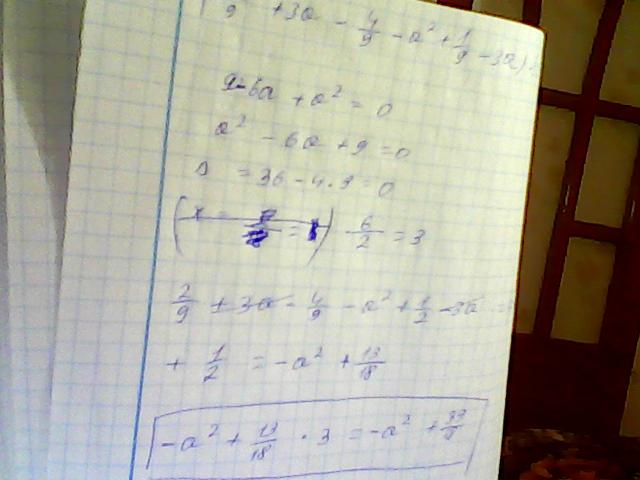 9 + 3a - 4/9 - a² + 1/9 - 3a) =
9 - 6a + a² = 0
a² - 6a + 9 = 0
D = 36 - 4·9 = 0
6/2 = 3
2/9 + 3a - 4/9 - a² + 1/2 - 3a =
+ 1/2 = -a² + 13/18
-a² + 13/18 · 3 = -a² + 39/